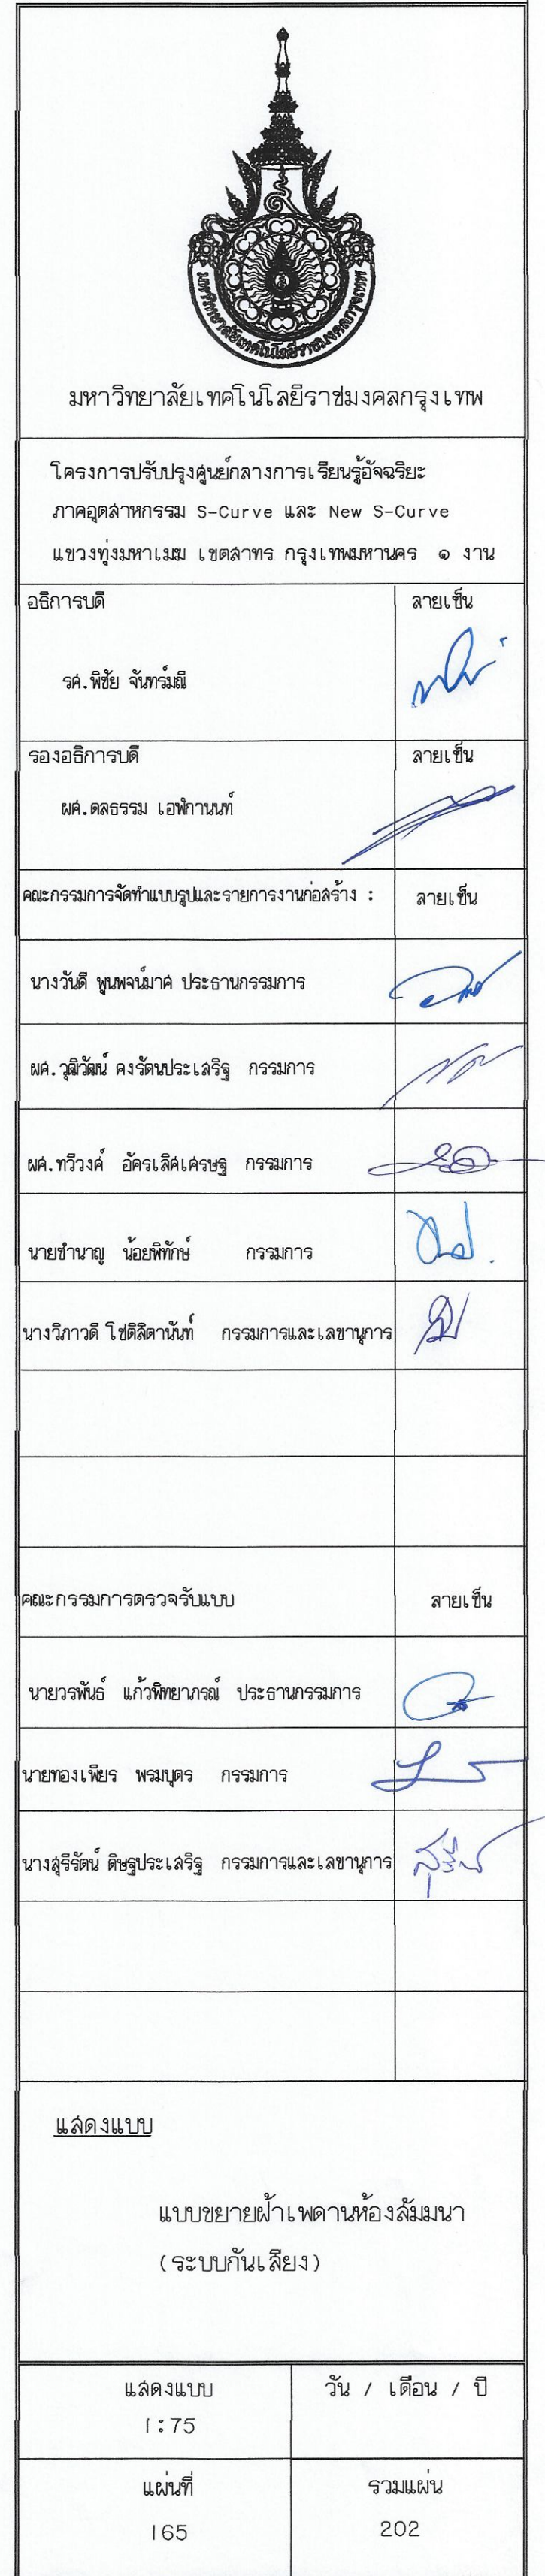 มหาวิทยาลัยเทคโนโลยีราชมงคลกรุงเทพ
มหาวิทยาลัยเทคโนโลยีราชมงคลกรุงเทพ
โครงการปรับปรุงศูนย์กลางการเรียนรู้อัจฉริยะ
ภาคอุตสาหกรรม S-Curve และ New S-Curve
แขวงทุ่งมหาเมฆ เขตสาทร กรุงเทพมหานคร ๑ งาน
อธิการบดี ลายเซ็น
รศ.พิชัย จันทร์มณี
รองอธิการบดี ลายเซ็น
ผศ.ดลธรรม เอฬกานนท์
คณะกรรมการจัดทำแบบรูปและรายการงานก่อสร้าง : ลายเซ็น
นางวันดี พูนพจน์มาศ ประธานกรรมการ
ผศ.วุฒิวัฒน์ คงรัตนประเสริฐ กรรมการ
ผศ.ทวีวงศ์ อัครเลิศเศรษฐ กรรมการ
นายชำนาญ น้อยพิทักษ์ กรรมการ
นางวิภาวดี โชติลิตานันท์ กรรมการและเลขานุการ
คณะกรรมการตรวจรับแบบ ลายเซ็น
นายวรพันธ์ แก้วพิทยาภรณ์ ประธานกรรมการ
นายทองเพียร พรมบุตร กรรมการ
นางสุรีรัตน์ ดิษฐประเสริฐ กรรมการและเลขานุการ
แสดงแบบ
แบบขยายฝ้าเพดานห้องสัมมนา
(ระบบกันเสียง)
แสดงแบบ วัน / เดือน / ปี
1:75
แผ่นที่ รวมแผ่น
165 202